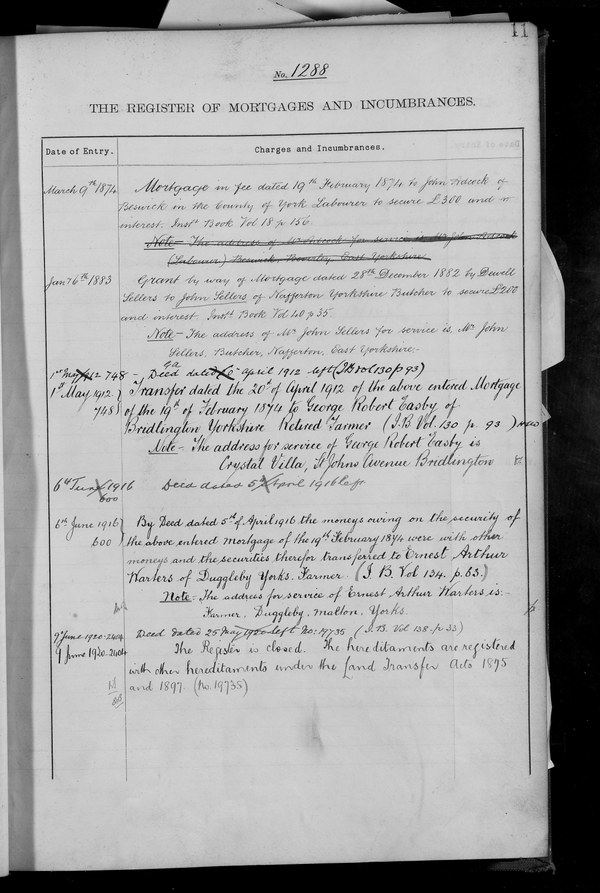 11
No. 1288
THE REGISTER OF MORTGAGES AND INCUMBRANCES.
Date of Entry.
Charges and Incumbrances.
March 9th 1874
Mortgage in fee dated 19th February 1874 to John Adcock of
Beswick in the County of York Labourer to secure £300 and
interest. Inst. Book Vol 18 p 156.
Note - The address of Mr Adcock for service is Mr John Adcock
(Labourer) Beswick, Beverley East Yorkshire
Jany 6th 1883
Grant by way of Mortgage dated 28th December 1882 by Dewell
Sellers to John Sellers of Nafferton Yorkshire Butcher to secure £200
and interest. Inst. Book Vol 40 p 35
Note - The address of Mr John Sellers for service is, Mr John
Sellers, Butcher, Nafferton, East Yorkshire.
1st May 1912 748 - Deed dated April 1912 left (I.B. vol 130 p 93)
1st May 1912
748
Transfer dated the 20th of April 1912 of the above entered Mortgage
of the 19th of February 1874 to George Robert Easby of
Bridlington Yorkshire Retired Farmer (I.B. Vol. 130 p. 93)
Note - The address for service of George Robert Easby is
Crystal Villa, St Johns Avenue Bridlington
6th June 1916
600
Deed dated 5th April 1916 left
6th June 1916
600
By Deed dated 5th of April 1916 the moneys owing on the security of
the above entered mortgage of the 19th February 1874 were with other
moneys and the securities therefor transferred to Ernest Arthur
Warters of Duggleby Yorks. Farmer. (I. B. Vol 134. p. 63.)
Note: The address for service of Ernest Arthur Warters is:-
Farmer, Duggleby, Malton, Yorks.
9 June 1920. 2404
Deed dated 25 May 1920 left No: 19735 (I.B. Vol 138. p 33)
9 June 1920. 2404
The Register is closed. The hereditaments are registered
with other hereditaments under the Land Transfer Acts 1875
and 1897. (No. 19735)